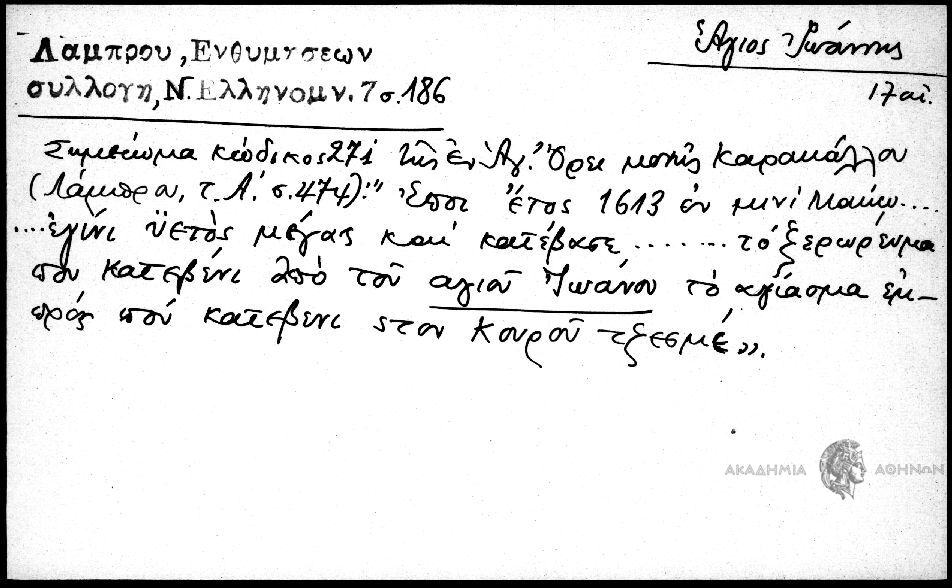 Λάμπρου, Ενθυμησεων
Ἅγιος Ἰωάννης
συλλογη, Ν. Ελληνομν. 7 σ. 186
17 αἰ.
Σημείωμα κώδικος 271 τῆς ἐν Ἁγ. Ὄρει μονῆς Καρακάλλου
(Λάμπρου, τ. Α΄. σ. 474): "Ἐπσι Ἔτος 1613 ἐν μινί Μαΐω....
....ἐγίνι ὑετὸς μέγας και κατέβασε ........ τό ξερωρέυμα
που κατεβένι ἀπὸ τοῦ αγιοῦ Ἰωάνου τὸ αγίασμα ἐμ-
πρός πού κατεβενι στον Κουροῦ τζεσμέ».
ΑΚΑΔΗΜΙΑ ΑΘΗΝΩΝ